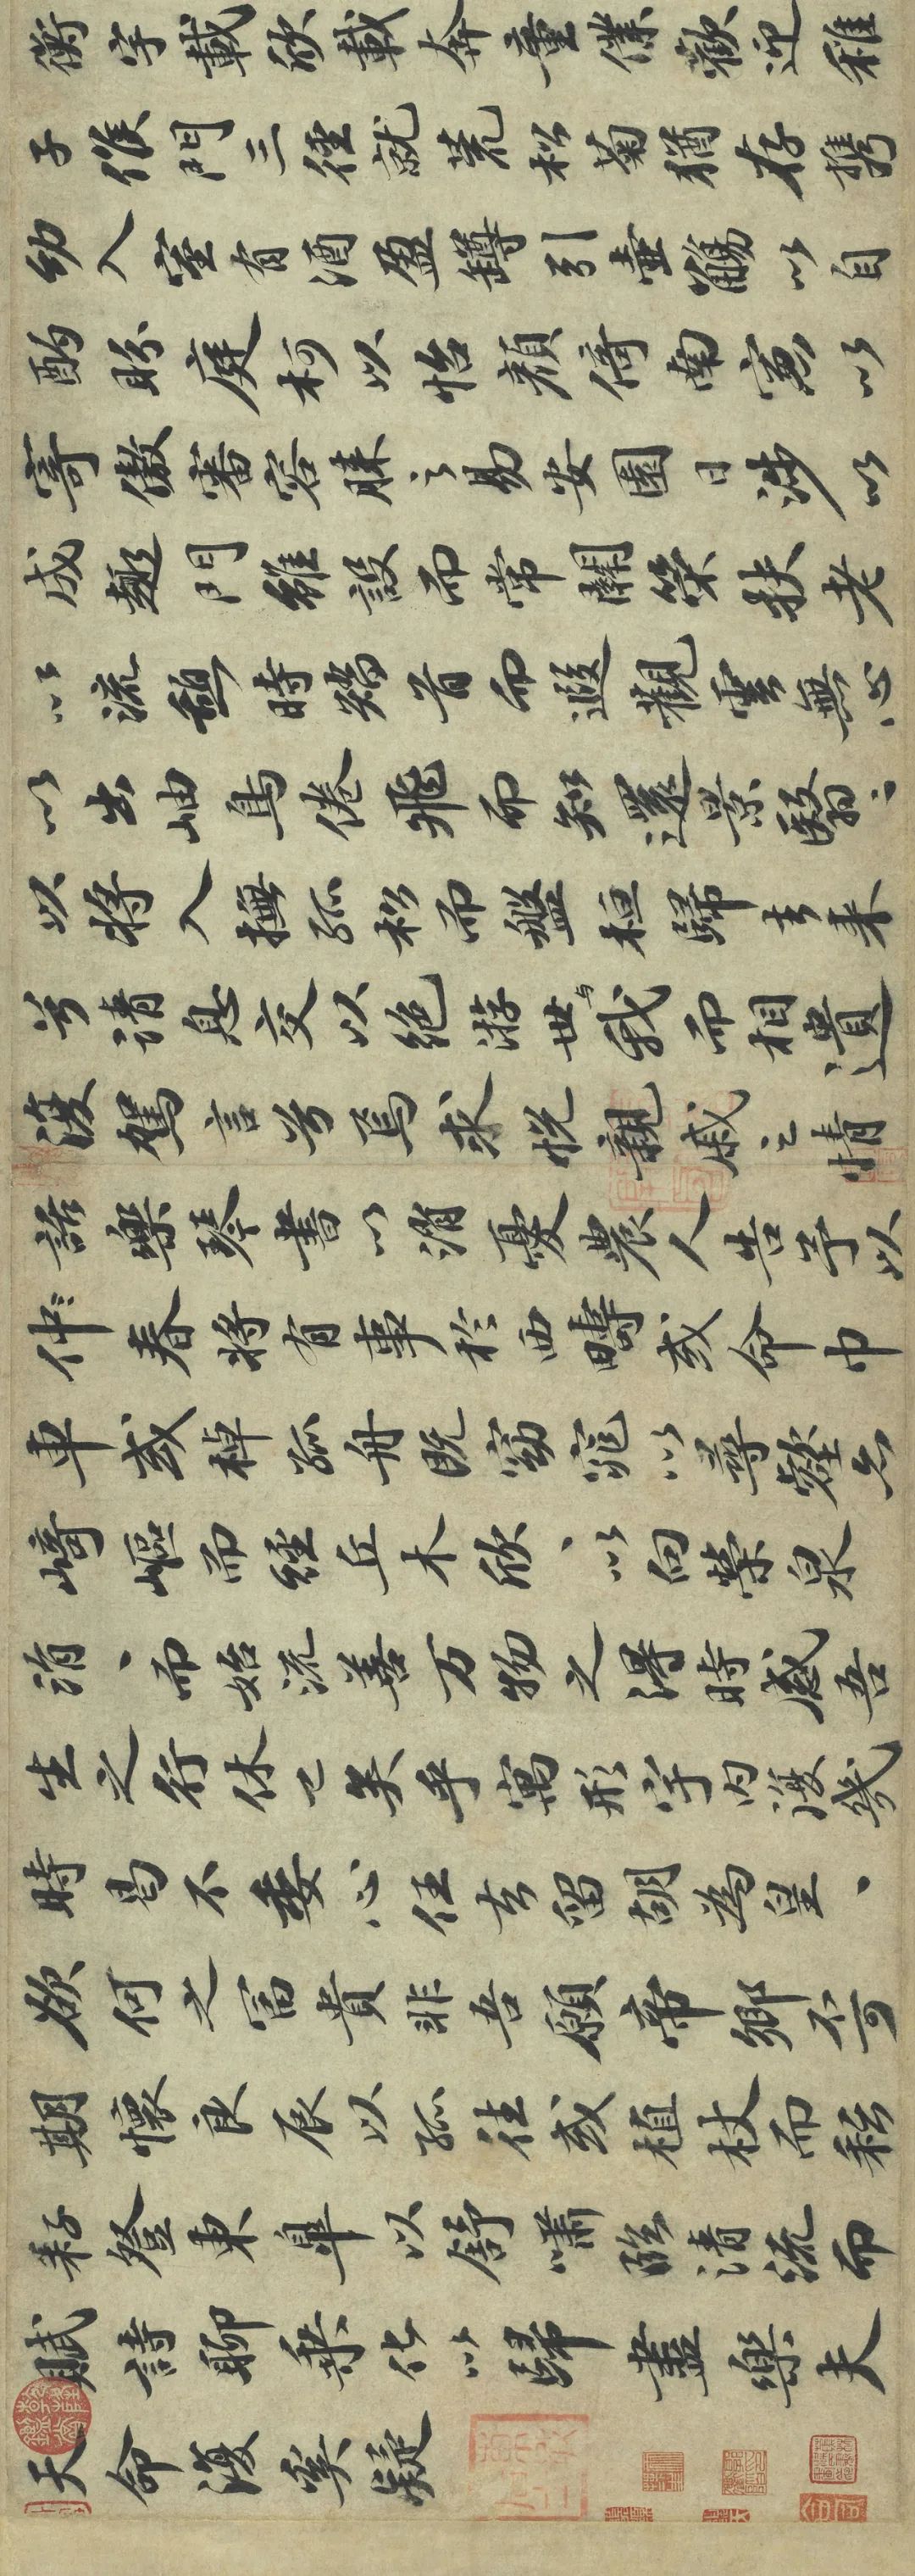 衡宇載欣載奔童僕歡迎稚
子候門三徑就荒松菊猶存携
幼入室有酒盈罇引壺觴以自
酌眄庭柯以怡顏倚南窻以
寄傲審容膝之易安園日涉以
成趣門雖設而常關策扶老
以流憩時矯首而遐觀雲無心
以出岫鳥倦飛而知還景翳〻
以將入撫孤松而盤桓歸去来
兮請息交以絕游世与我而相遺
復駕言兮焉求悅親戚之情
話樂琴書以消憂農人告予以
仲春將有事於西疇或命巾
車或棹孤舟既窈窕以尋壑亦
崎嶇而經丘木欣、以向榮泉
涓、而始流善万物之得時感吾
生之行休已矣乎寓形宇内復幾
時曷不委心任去留胡為皇、
欲何之富貴非吾願帝鄉不可
期懷良辰以孤往或植杖而耘
耔登東皐以舒嘯臨清流而
賦詩聊乘化以歸盡樂夫
天命復奚疑